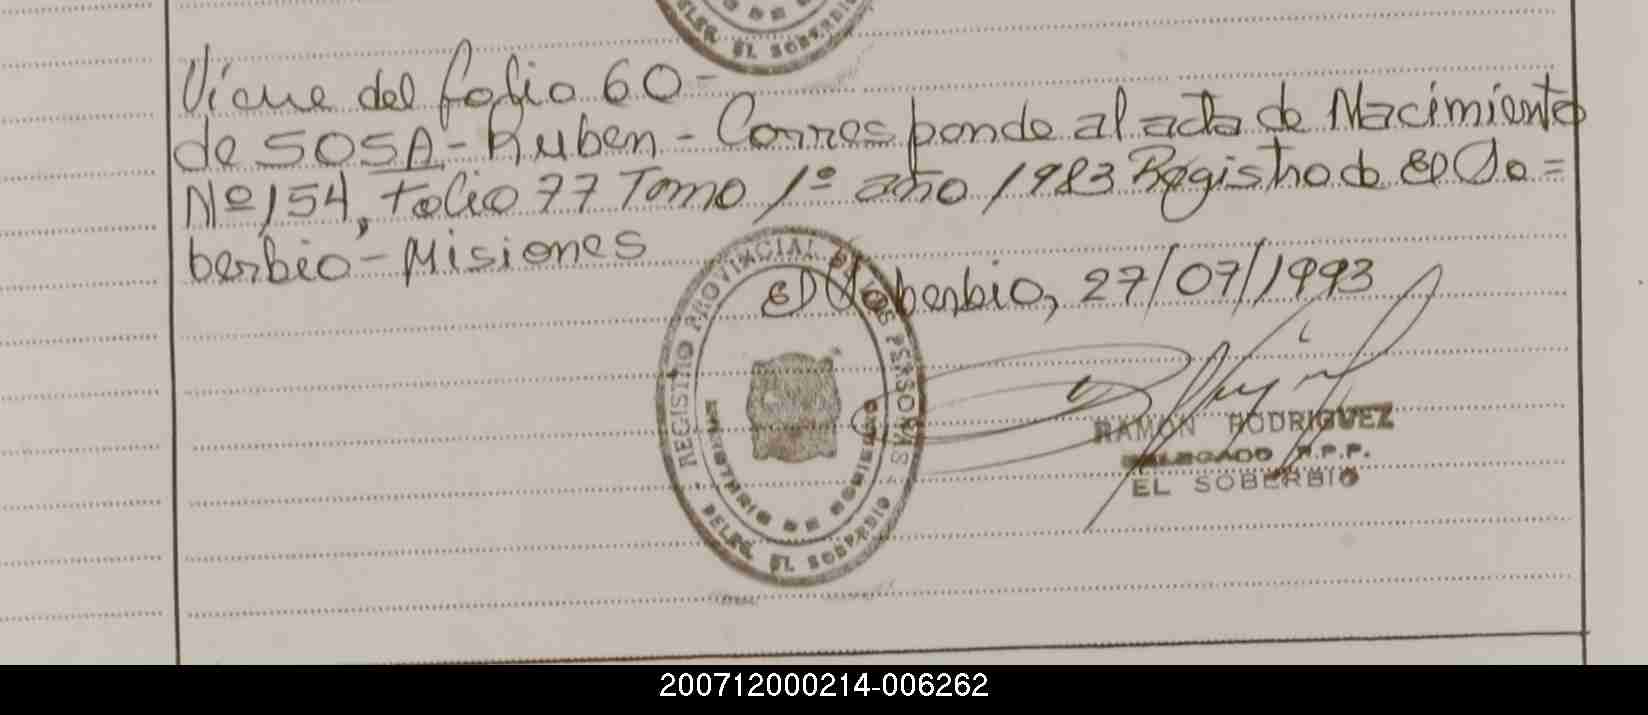 DELEG. EL SOBERBIO
Viene del folio 60-
de SOSA- Ruben - Corresponde al acta de Nacimiento
Nº 154, folio 77 Tomo 1º año 1983 Registrado El So=
berbio - Misiones
El Soberbio, 27/07/1993
REGISTRO PROVINCIAL DE LAS PERSONAS
DE DOMICILIO
DELEG. EL SOBERBIO
RAMON RODRIGUEZ
DELEGADO R.P.P.
EL SOBERBIO
200712000214-006262